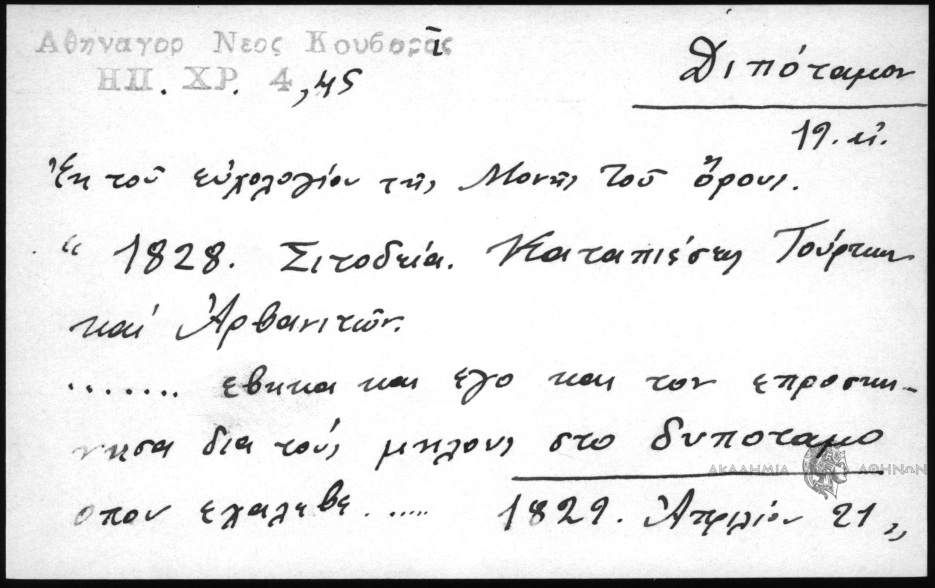 Αθηναγορ Νεος Κουβαρᾶς
ΗΠ. ΧΡ. 4, 45
Διπόταμον
19. αἰ.
Ἐκ τοῦ εὐχολογίου τῆς Μονῆς τοῦ ὄρους.
“ 1828. Σιτοδεία. Καταπιέσεις Τούρκων
καί Ἀρβανιτῶν.
....... εβηκα και εγο και τον επροσκη-
νησα δια τούς μηλους στο δυποταμο
ΑΚΑΔΗΜΙΑ ΑΘΗΝΩΝ
οπου εχαλεβε ..... 1829. Ἀπριλίου 21 „